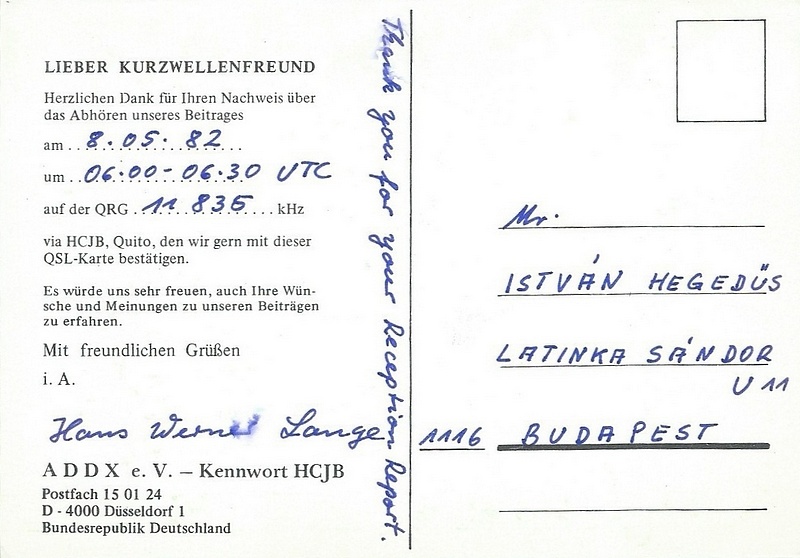 LIEBER KURZWELLENFREUND
Herzlichen Dank für Ihren Nachweis über
das Abhören unseres Beitrages
am . . 8.05.82 . .
um . . 06.00-06.30 UTC
auf der QRG . 11 835 . . . . kHz
via HCJB, Quito, den wir gern mit dieser
QSL-Karte bestätigen.
Es würde uns sehr freuen, auch Ihre Wün-
sche und Meinungen zu unseren Beiträgen
zu erfahren.
Mit freundlichen Grüßen
i. A.
Hans Werner Lange
ADDX e. V. – Kennwort HCJB
Postfach 15 01 24
D - 4000 Düsseldorf 1
Bundesrepublik Deutschland
Thank you for your Reception Report.
Mr.
ISTVÁN HEGEDÜS
LATINKA SÁNDOR
U 11
1116 BUDAPEST